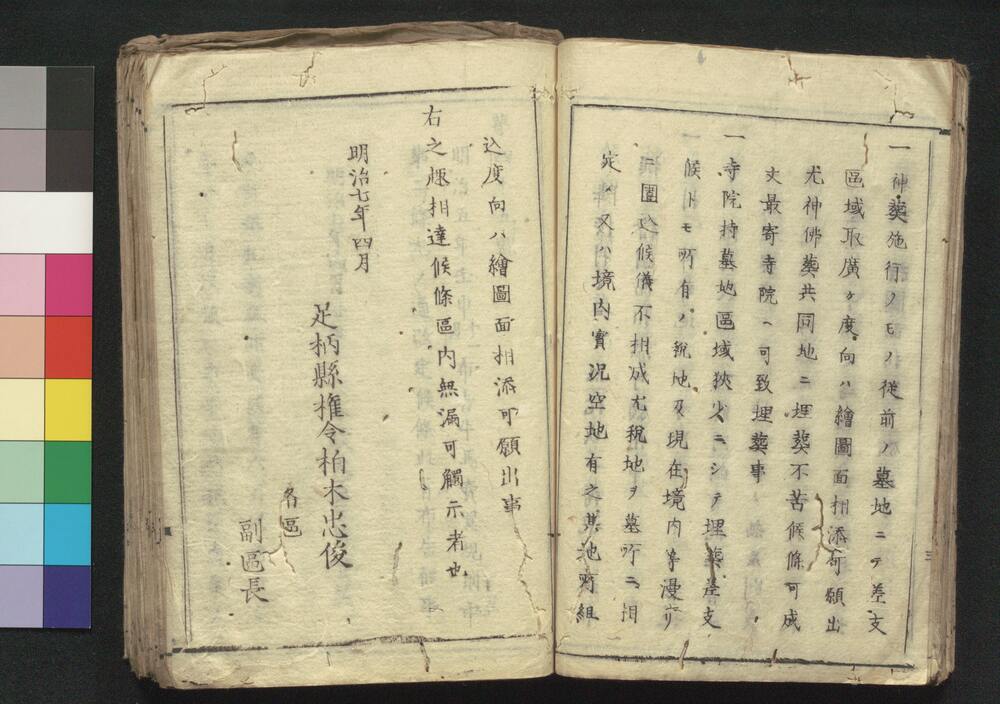 一神葬施行ノモノ従前ノ墓地ニテ差支
區域取廣ケ度向ハ繪圖面相添可願出
尤神佛葬共同地ニ埋葬不苦候條可成
丈最寄寺院ヘ可致埋葬事
一寺院持墓地區域狹少ニシテ埋葬差支
候トモ所有ノ税地及現在境内等漫リ
ニ圍込候儀不相成尤税地ヲ墓所ニ相
定メ又ハ境内實況空地有之其池所組
込度向ハ繪圖面相添可願出事
右之趣相達候條區内無漏可觸示者也
明治七年四月
足柄縣権令柏木忠俊
各區
副區長